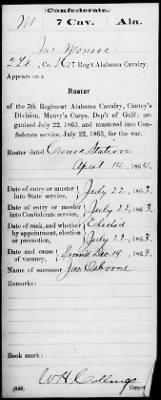 (Confederate.)
M 7 Cav. Ala.
Jas Monroe
2 Lt, Co. K, 7 Reg't Alabama Cavalry.
Appears on a
Roster
of the 7th Regiment Alabama Cavalry, Cantey's
Division, Maury's Corps, Dep't of Gulf; organized
July 22, 1863, and mustered into Confederate
service, July 22, 1863, for the war.
Roster dated Station
April 14, 1864.
Date of entry or muster into State service, July 22, 1863.
Date of entry or muster into Confederate service, July 22, 1863.
Date of rank, and whether by appointment, election or promotion, Elected July 22, 1863.
Date and cause of vacancy, Dec 19, 1863.
Name of successor, Jas Osborne
Remarks:
Book mark:
W H Collings
(646) Copyist.